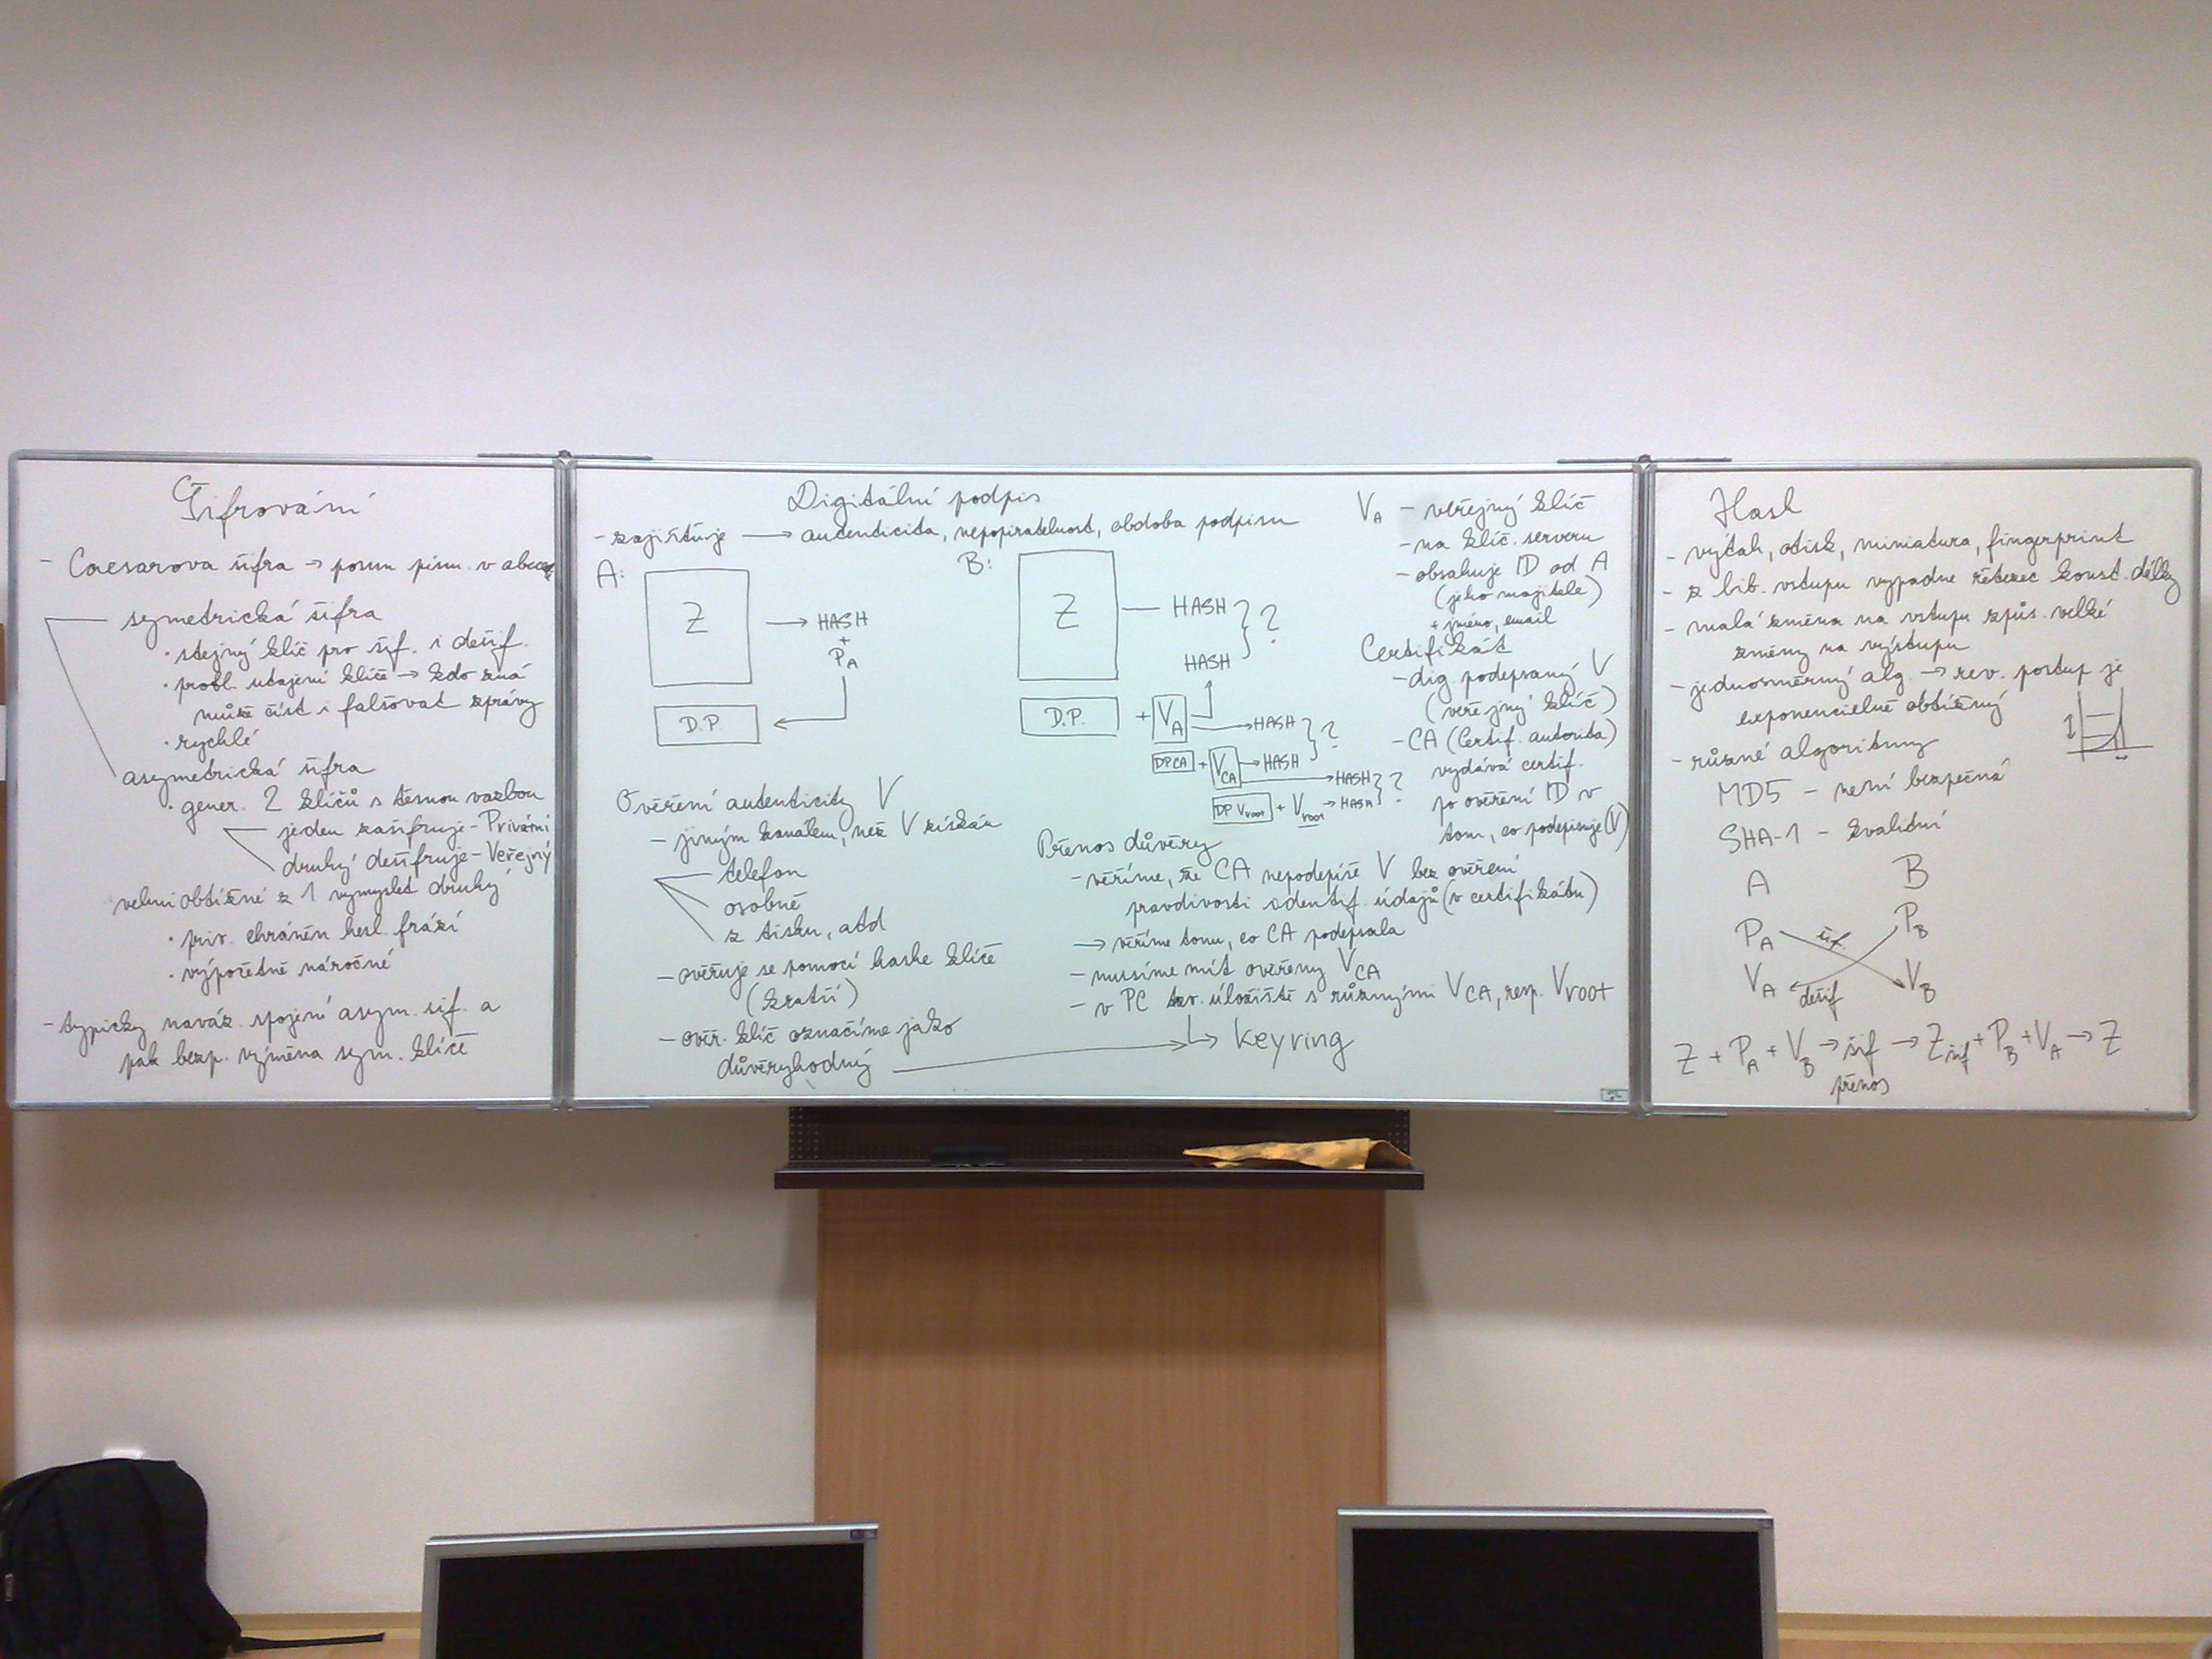 Šifrování
- Caesarova šifra → posun písm. v abeced
symetrická šifra
· stejný klíč pro šif. i dešif.
· probl. utajení klíče → kdo zná
může číst i falšovat zprávy
· rychlé
asymetrická šifra
· gener. 2 klíčů s těsnou vazbou
jeden zašifruje - Privátní
druhý dešifruje - Veřejný
velmi obtížné z 1 vymyslet druhý
· priv. chráněn hesl. frází
· výpočetně náročné
- typicky naváz. spojení asym. šif. a
pak bezp. výměna sym. klíče
Digitální podpis
- zajišťuje → autenticita, nepopiratelnost, obdoba podpisu
A:
Z → HASH
+
PA
D.P.
B:
Z — HASH } ?
HASH
D.P. + VA → HASH } ?
DPCA + VCA → HASH
→ HASH } ?
DP Vroot + Vroot → HASH
Ověření autenticity V
- jiným kanálem, než V získán
telefon
osobně
z tisku, atd
- ověřuje se pomocí hashe klíče
(kratší)
- ověř. klíč označíme jako
důvěryhodný
Přenos důvěry
- věříme, že CA nepodepíše V bez ověření
pravdivosti identif. údajů (v certifikátu)
→ věříme tomu, co CA podepsala
- musíme mít ověřený VCA
- v PC tzv. úložiště s různými VCA, resp. Vroot
↳ keyring
VA - veřejný klíč
- na klíč. serveru
- obsahuje ID od A
(jeho majitele)
+ jméno, email
Certifikát
- dig podepsaný V
(veřejný klíč)
- CA (Certif. autorita)
vydává certif.
po ověření ID v
tom, co podepisuje (V)
Hash
- výtah, otisk, miniatura, fingerprint
- z lib. vstupu vypadne řetězec konst. délky
- malá změna na vstupu způs. velké
změny na výstupu
- jednosměrný alg. → rev. postup je
exponencielně obtížný
- různé algoritmy
MD5 - není bezpečná
SHA-1 - kvalitní
A B
PA šif. PB
VA dešif VB
Z + PA + VB → šif → Zšif + PB + VA → Z
přenos